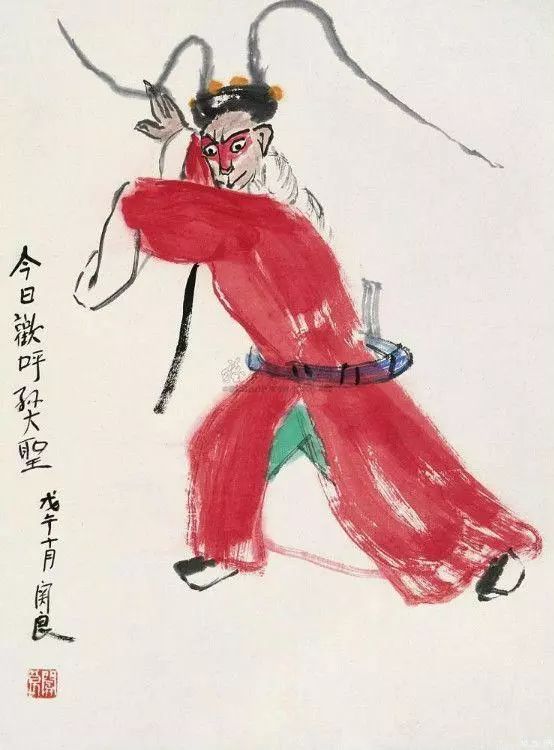 今日歡呼孫大聖
戊午十月 關良